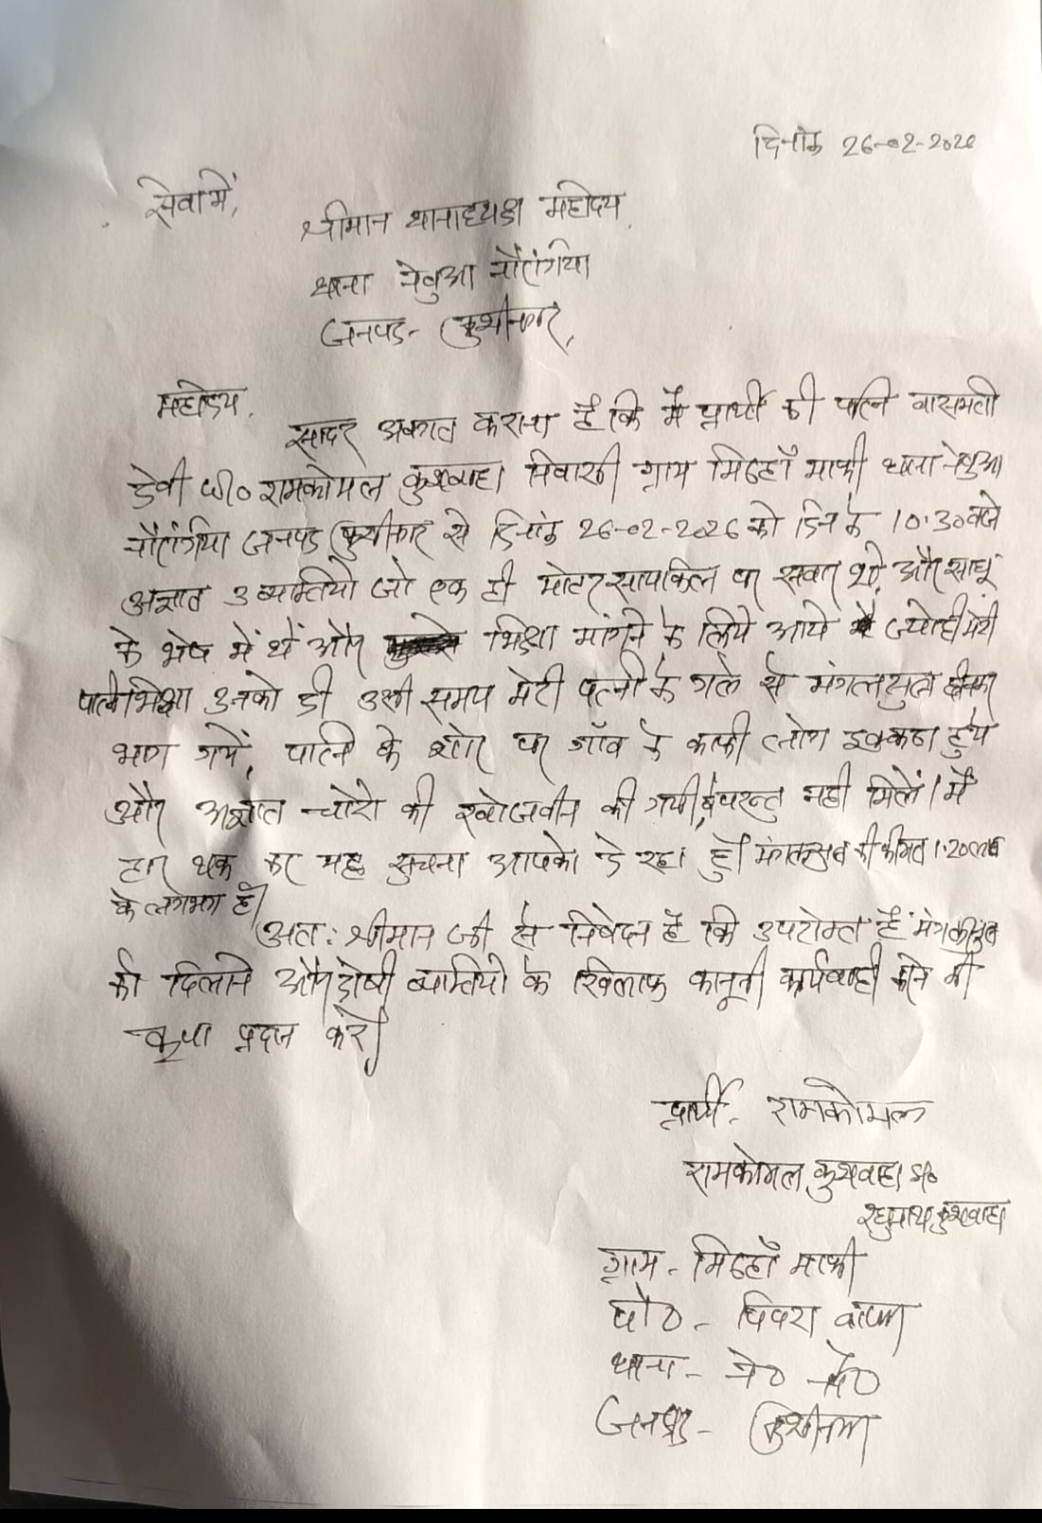 दिनांक 26-02-2026
सेवा में,
श्रीमान थानाध्यक्ष महोदय,
थाना नेबुआ नौरंगिया
जनपद- कुशीनगर,
महोदय,
सादर अवगत कराना है कि मैं प्रार्थी की पत्नि बासमती
देवी W/o रामकोमल कुशवाहा निवासी ग्राम मिठहाँ माफी थाना नेबुआ
नौरंगिया जनपद कुशीनगर से दिनांक 26-02-2026 को दिन के 10:30 बजे
अज्ञात 3 व्यक्तियो जो एक ही मोटर सायकिल पर सवार थे, और साधू
के भेष में थे और भिक्षा मांगने के लिये आये थे ज्योही मेरी
पत्नि भिक्षा उनको दी उसी समय मेरी पत्नी के गले से मंगलसुत्र छीनकर
भाग गये, पत्नि के शोर पर गाँव के काफी लोग इक्कठा हुये
और अज्ञात चोरो की खोजवीन की गयी, परन्तु नही मिले। मैं
हार थक कर यह सुचना आपको दे रहा हूँ। मंगलसुत्र की कीमत 1.20 लाख
के लगभग है।
अतः श्रीमान जी से निवेदन है कि उपरोक्त
को दिलाने और दोषी व्यक्तियो के खिलाफ कानूनी कार्यवाही करने की
कृपा प्रदान करें।
प्रार्थी- रामकोमल
रामकोमल कुशवाहा S/o
रघुनाथ कुशवाहा
ग्राम- मिठहाँ माफी
पो०- पिपरा
थाना- ने० नौ०
जनपद- कुशीनगर